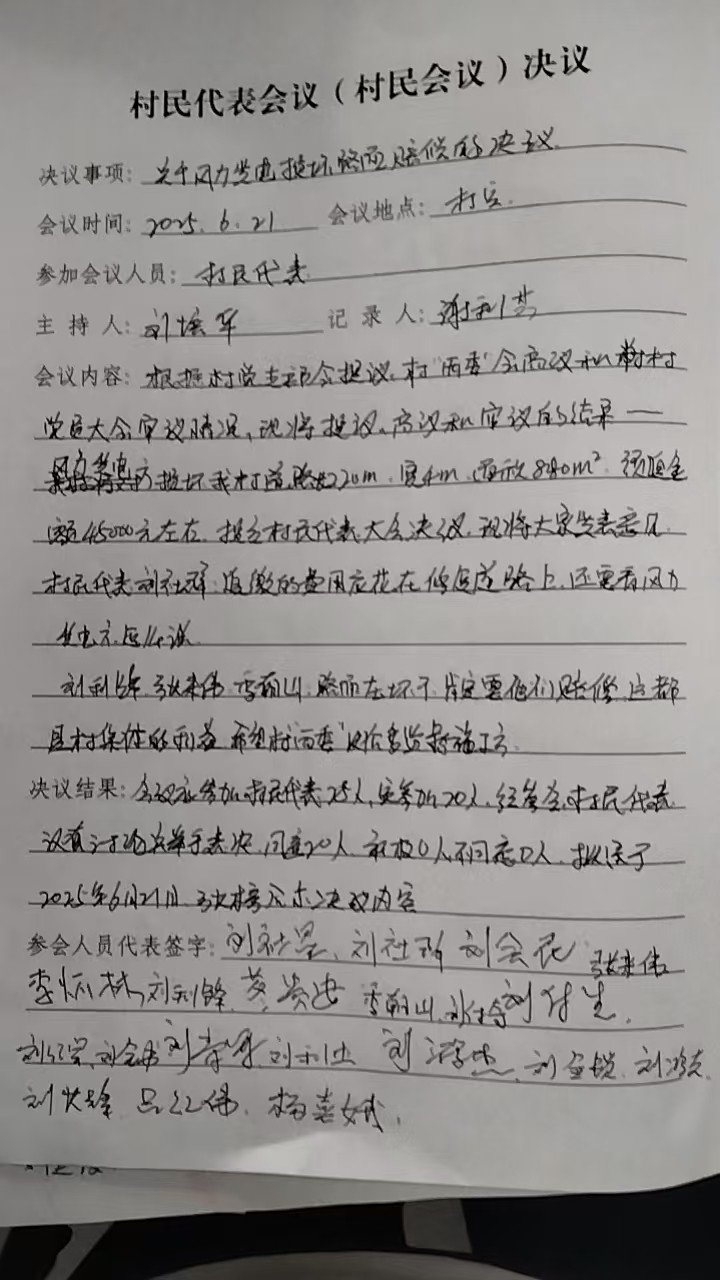 村民代表会议（村民会议）决议
决议事项：关于风力发电损坏路面赔偿的决议
会议时间：2025.6.21 会议地点：村室
参加会议人员：村民代表
主 持 人：刘 军 记 录 人：谢利
会议内容：根据村党支部会提议、村“两委”会商议和 村
党员大会审议情况，现将提议、商议和审议的结果一
风力发电方损坏我村道路长220m，宽4m，面积880m²，须 金
额45000元左右，提交村民代表大会决议，现将大家发表意见
村民代表刘社群：追缴的费用应花在修复道路上，还要看风力
发电方怎么说
刘利锋、张来伟、李朝山：路面在坏了，肯定要他们赔偿，这都
是村集体的利益，希望村“两委”
决议结果：会议应参加村民代表25人，实参加20人，经参会村民代表
没有讨论后举手表决，同意20人，弃权0人不同意0人，拟定于
2025年6月21日 张榜公示决议内容
参会人员代表签字：刘社 、刘社 刘会民 张来伟
李 林、刘利锋、黄 李朝山、 刘 生、
刘 、刘会 刘 军、刘利 刘 杰、刘金锁、刘
刘 锋 吕红伟、杨喜娥、